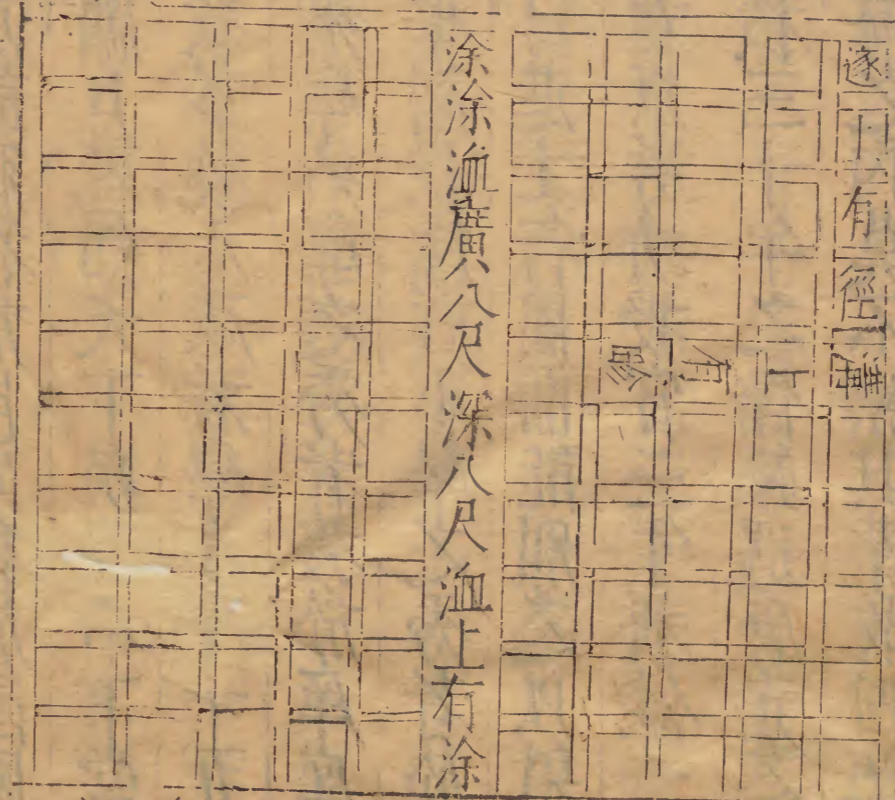 遂上有徑
溝上有畛
涂涂洫廣八尺深八尺洫上有涂